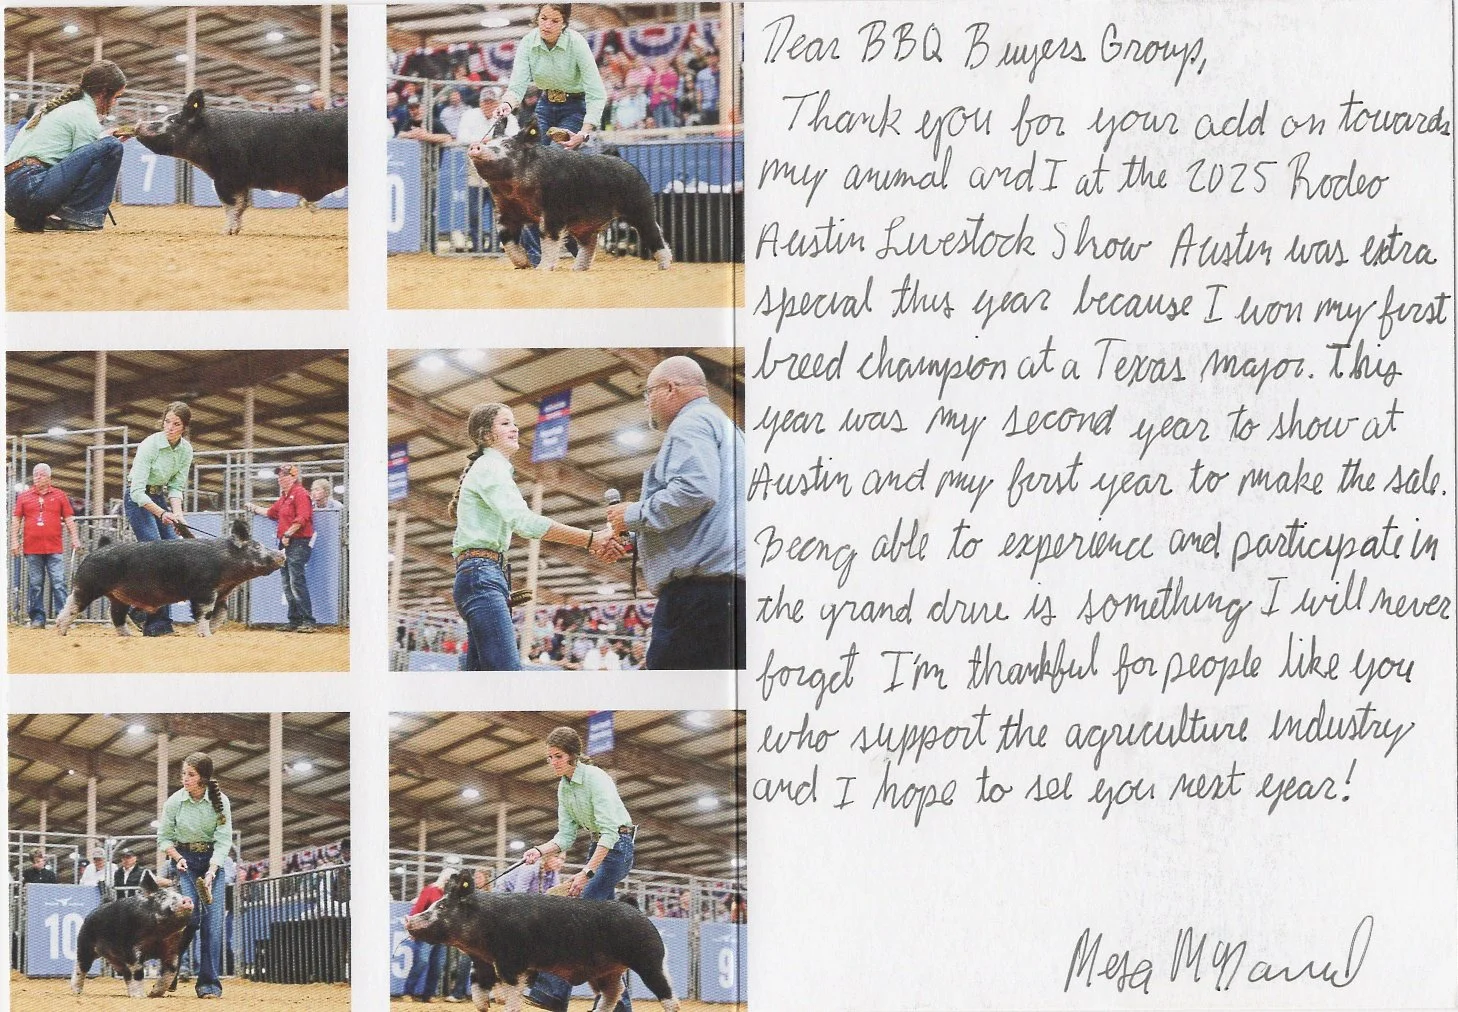 7
0
10
5
9
Dear BBQ Buyers Group,
Thank you for your add on towards
my animal and I at the 2025 Rodeo
Austin Livestock Show Austin was extra
special this year because I won my first
breed champion at a Texas major. This
year was my second year to show at
Austin and my first year to make the sale.
Being able to experience and participate in
the grand drive is something I will never
forget I'm thankful for people like you
who support the agriculture industry
and I hope to see you next year!